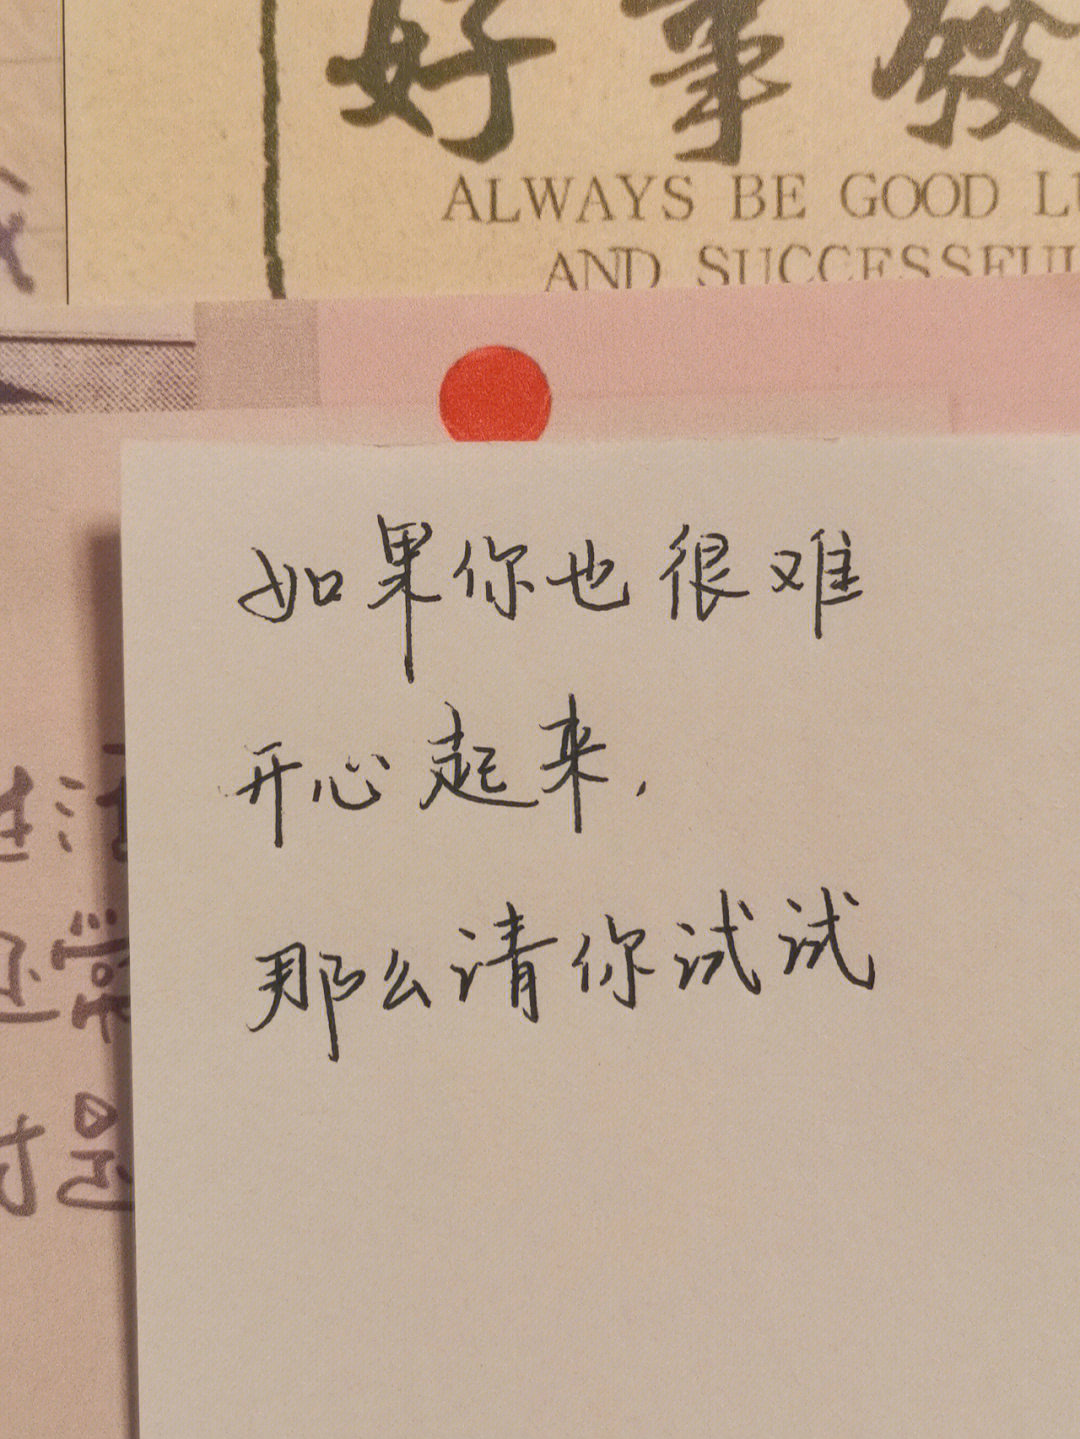 好事發
ALWAYS BE GOOD LU
AND SUCCESSFUL
如果你也很难
开心起来，
那么请你试试